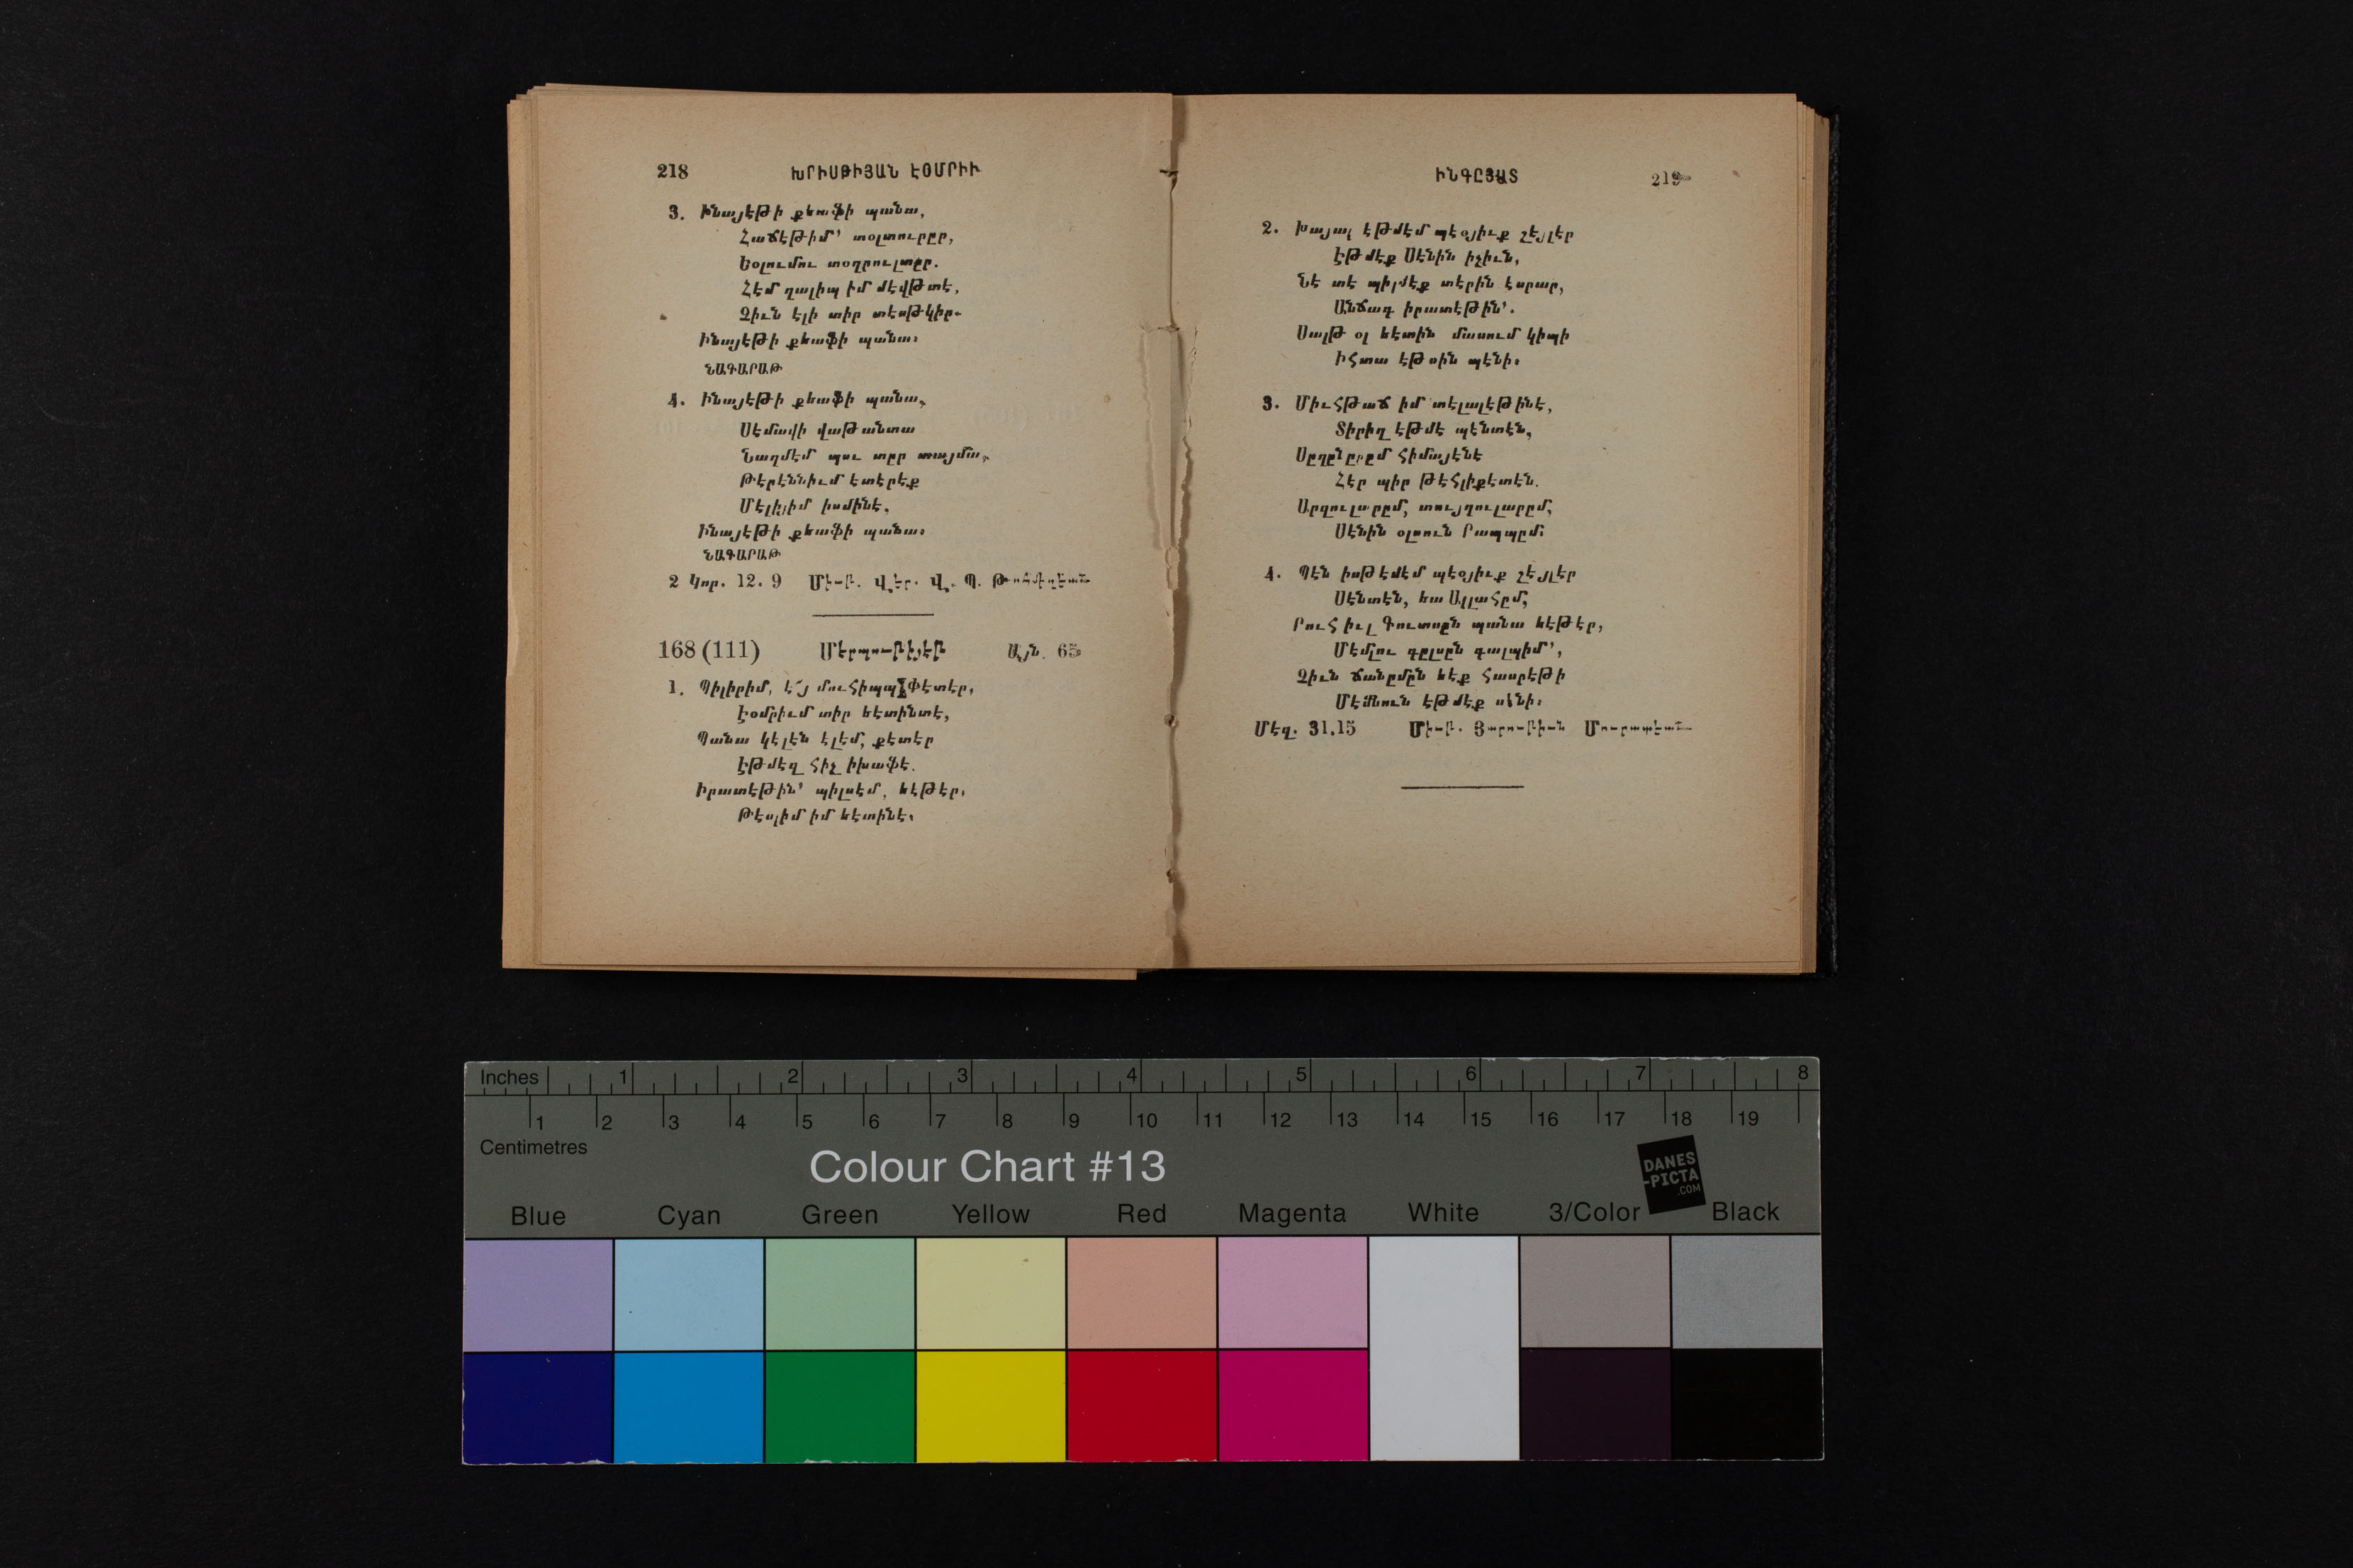 218 ԽՐԻՍԹԻՅԱՆ ԷՕՄՐԻԻ
3. Ինայէթի քեաֆի պանա,
Հաճէթիմ՚ տօլտուրըր,
Եօլումու տօղրուլտըր.
Հէմ ղալիպ իմ մէվթտէ,
Զիւն էլի տիր տէսթկիր.
Ինայէթի քեաֆի պանա։
ՆԱԳԱՐԱԹ
4. Ինայէթի քեաֆի պանա,
Սէմավի վաթանտա
Նաղմէմ պու տըր տայմա,
Թէրէննիւմ էտէրէք
Մէլիյիմ իսմինէ,
Ինայէթի քեաֆի պանա։
ՆԱԳԱՐԱԹ
2 Կոր. 12. 9 Միւ-ր. Վէր. Վ. Պ.
168 (111) Այն. 65
1. Պիլիրիմ, է՜յ մուհիպպ Փէտէր,
Էօմրիւմ տիր եէտինտէ,
Պանա կէլէն էլէմ, քէտէր
Էթմէզ հիչ իխաֆէ.
Իրատէթին՚ պիլսէմ, եէթէր,
Թէսլիմ իմ եէտինէ։
ԻՆԳԸՅԱՏ 219
2. Խայալ էթմէմ պէօյիւք շէյլէր
Էթմէք Սէնին իչիւն,
Նէ տէ պիլմէք տէրին էսրար,
Անճագ իրատէթին՚.
Սալթ օլ եէտին մասում կիպի
Իհտա էթսին պէնի։
3. Միւհթաճ իմ տէլալէթինէ,
Տիրիղ էթմէ պէնտէն,
Սըղընըրըմ հիմայէնէ
Հէր պիր թէհլիքէտէն.
Արզուլարըմ, տույղուլարըմ,
Սէնին օլսուն Րապպըմ։
4. Պէն իսթէմէմ պէօյիւք շէյլէր
Սէնտէն, եա Ալլահըմ,
Րուհիւլ Գուտսըն պանա եէթէր,
Մէմլու գըլսըն գալպիմ՚,
Զիւն ճանըմըն եէք հասրէթի
Մէմնուն էթմէք սէնի։
Մէզ. 31.15
Inches 1 2 3 4 5 6 7 8
1 2 3 4 5 6 7 8 9 10 11 12 13 14 15 16 17 18 19
Centimetres
Colour Chart #13
DANES
-PICTA
.COM
Blue Cyan Green Yellow Red Magenta White 3/Color Black